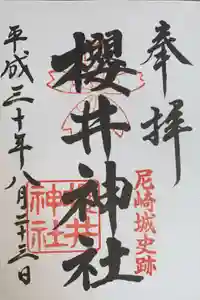 奉拝
櫻井神社
尼崎城史跡
櫻井神社
平成三十年八月二十三日